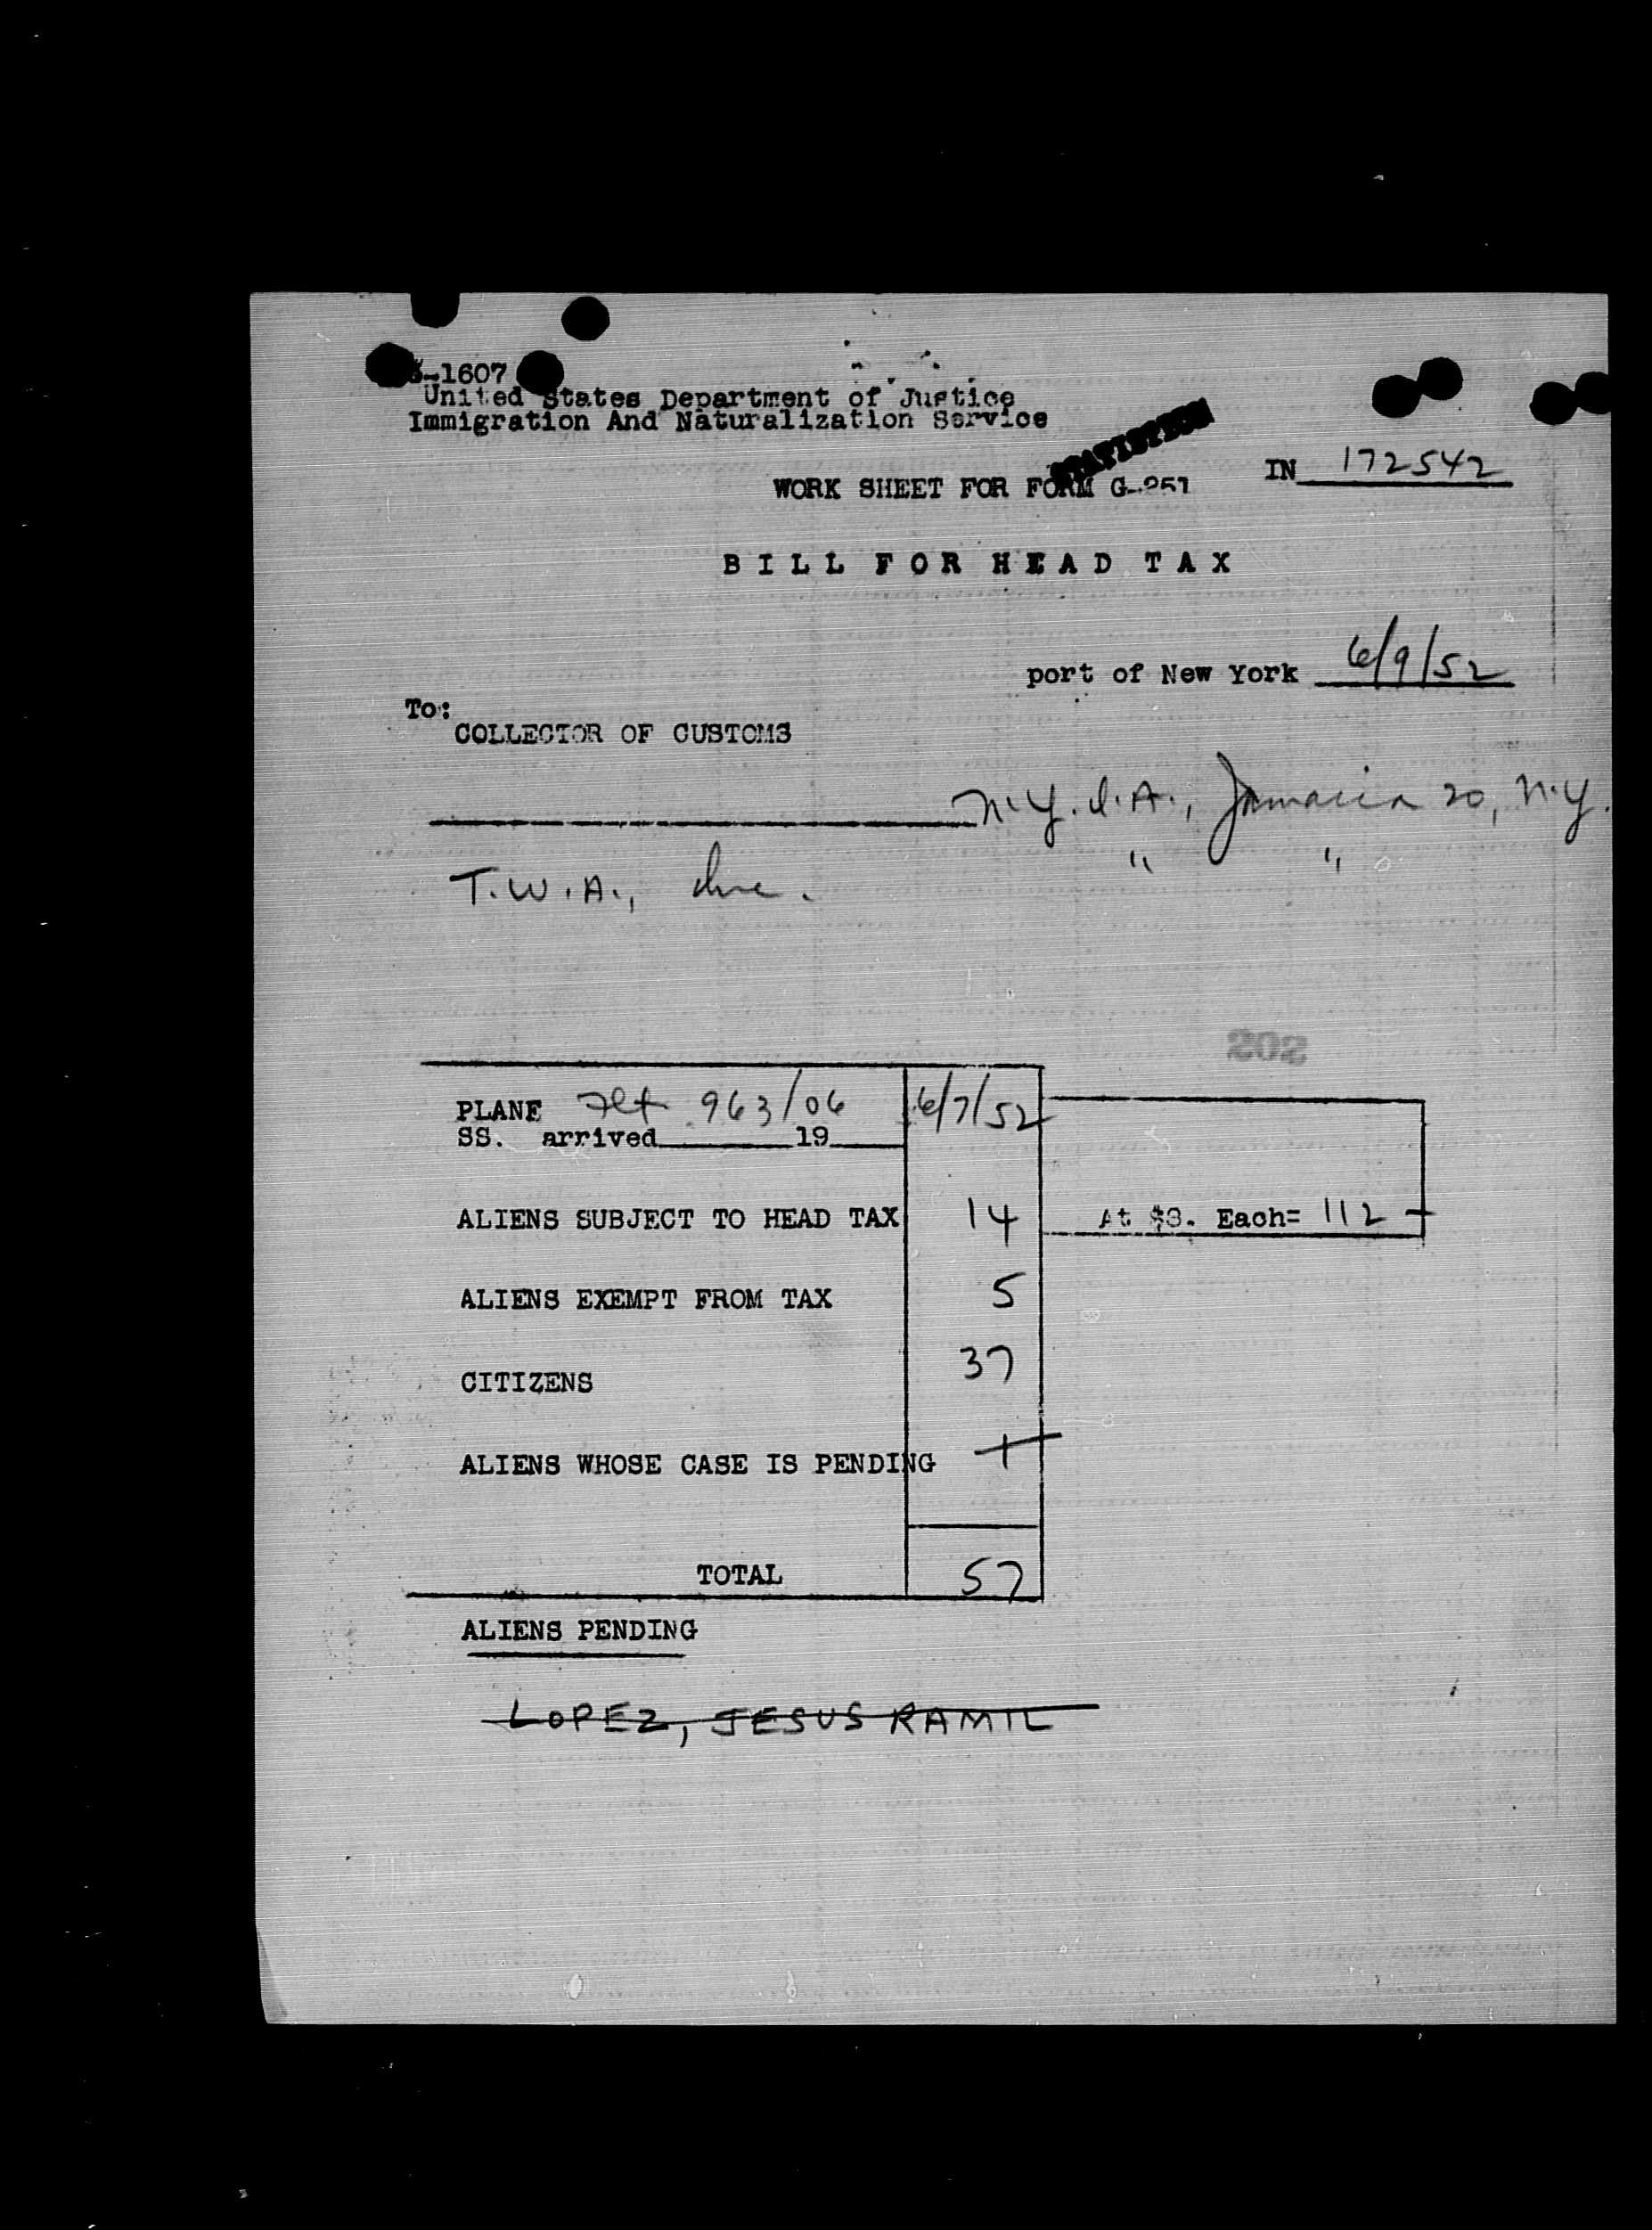 -1607
United States Department of Justice
Immigration And Naturalization Service
STATISTICS
WORK SHEET FOR FORM G-251
IN 172542
BILL FOR HEAD TAX
port of New York 6/9/52
To:
COLLECTOR OF CUSTOMS
N.Y.I.A., Jamaica 20, N.Y.
T.W.A., Inc. " "
202
PLANE Flt 963/06 6/7/52
SS. arrived 19
ALIENS SUBJECT TO HEAD TAX 14 At $8. Each= 112
ALIENS EXEMPT FROM TAX 5
CITIZENS 37
ALIENS WHOSE CASE IS PENDING 1
TOTAL 57
ALIENS PENDING
LOPEZ, JESUS RAMIL